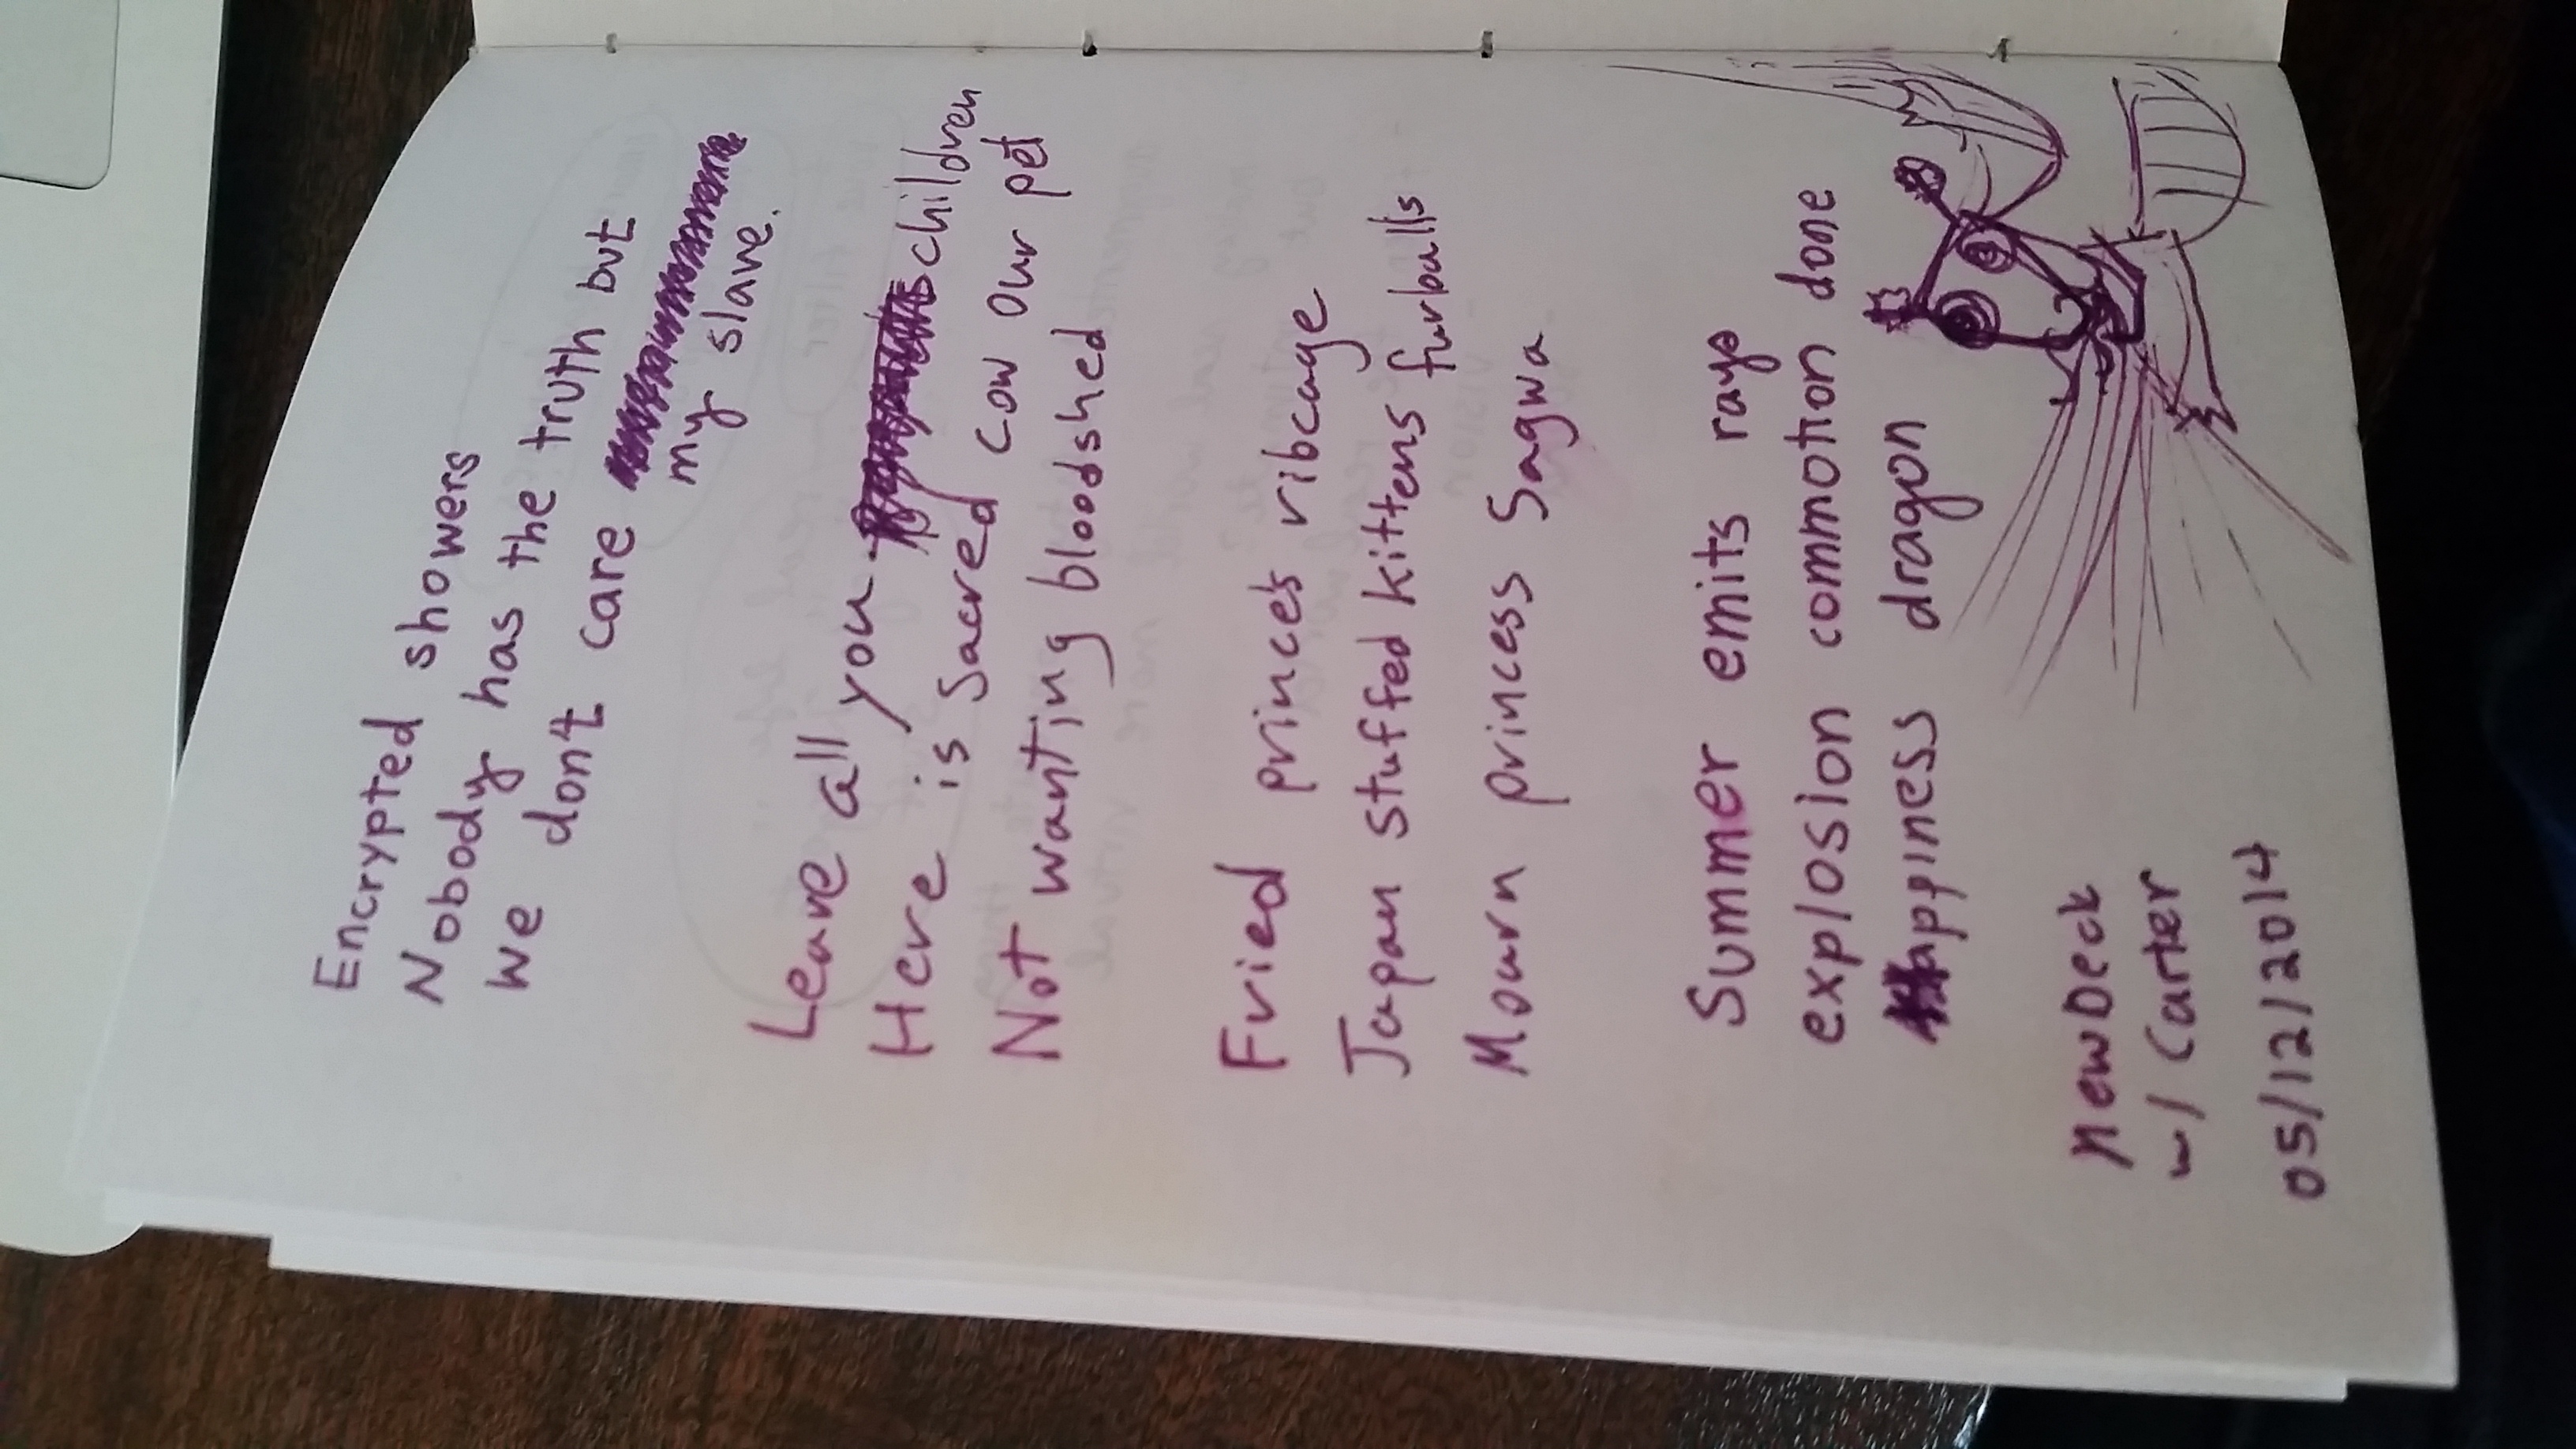 Encrypted showers
Nobody has the truth but
We don't care
my slave.
Leave all you children
Here is sacred cow our pet
Not wanting bloodshed
Fried prince's ribcage
Japan stuffed kittens furballs
Mourn princess Sagwa
Summer emits rays
explosion commotion done
Happiness dragon
newDeck
w/ Carter
05/12/2014